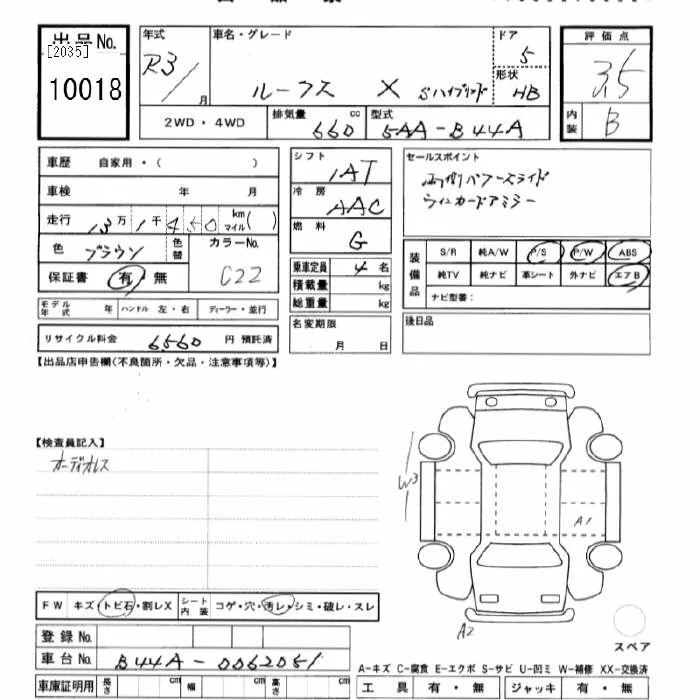 出品No.
[2035]
10018
年式
R3/
月
車名・グレード
ルークス X Sハイブリッド
ドア
5
形状
HB
2WD・4WD
排気量
660
cc
型式
5AA-B44A
評価点
3.5
内装
B
車歴 自家用・( )
車検 年 月
走行 13万1千450 km マイル( )
色 ブラウン
色替
カラーNo.
C22
保証書 有・無
モデル年式 年 ハンドル 左・右 ディーラー・並行
リサイクル料金 6560 円 預託済
シフト
IAT
冷房
AAC
燃料
G
乗車定員 4 名
積載量 kg
総重量 kg
名変期限
月 日
セールスポイント
両側パワースライド
ウィンカードアミラー
装備品
S/R 純A/W P/S P/W ABS
純TV 純ナビ 革シート 外ナビ エアB
ナビ型番:
後日品
【出品店申告欄(不良箇所・欠品・注意事項等)】
【検査員記入】
オーディオレス
W3
A1
A2
FW キズ・トビ石・割レX シート内装 コゲ・穴・汚レ・シミ・破レ・スレ
登録No.
車台No. B44A-0062051
車庫証明用 長さ cm 幅 cm 高さ cm
スペア
A-キズ C-腐食 E-エクボ S-サビ U-凹ミ W-補修 XX-交換済
工具 有・無 ジャッキ 有・無